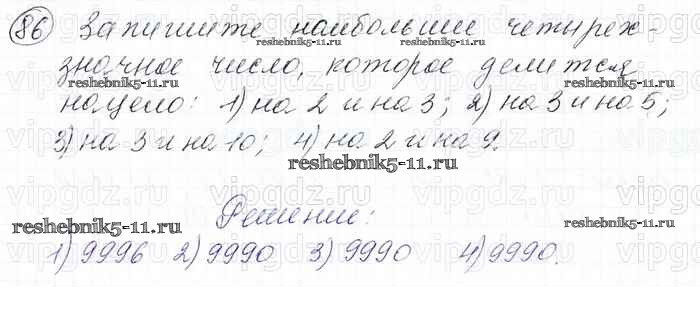 86 Запишите наибольшее четырех-
значное число, которое делится
нацело: 1) на 2 и на 3; 2) на 3 и на 5;
3) на 3 и на 10; 4) на 2 и на 9.
Решение:
1) 9996 2) 9990 3) 9990 4) 9990.
reshebnik5-11.ru
reshebnik5-11.ru
reshebnik5-11.ru
reshebnik5-11.ru
reshebnik5-11.ru
reshebnik5-11.ru
reshebnik5-11.ru
vipgdz.ru